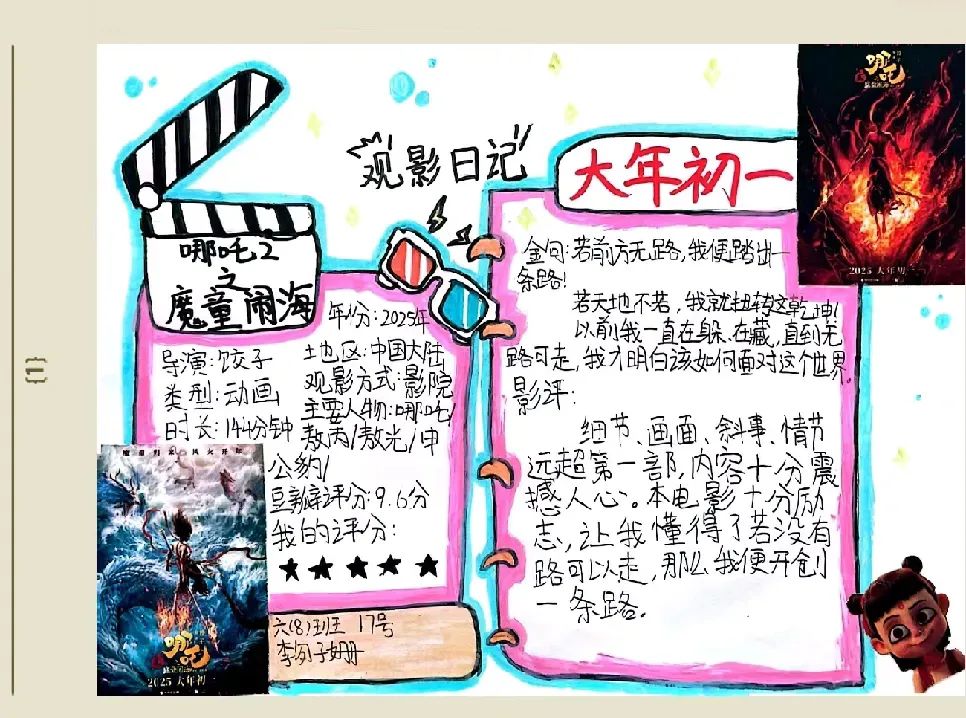 观影日记
大年初一
哪吒2
之
魔童闹海
年份:2025年
地区:中国大陆
观影方式:影院
主要人物:哪吒/
敖丙/敖光/申
公豹/
豆瓣评分:9.6分
我的评分:
★★★★★
导演:饺子
类型:动画
时长:144分钟
六(8)班 17号
金句:若前方无路,我便踏出一
条路!
若天地不若,我就扭转这乾坤!
以前我一直在躲、在藏,直到无
路可走,我才明白该如何面对这个世界。
影评:
细节、画面、斜事、情节
远超第一部,内容十分震
撼人心。本电影十分励
志,让我懂得了若没有
路可以走,那么我便开创
一条路。
哪吒
2025 大年初一
哪吒
2025 大年初一